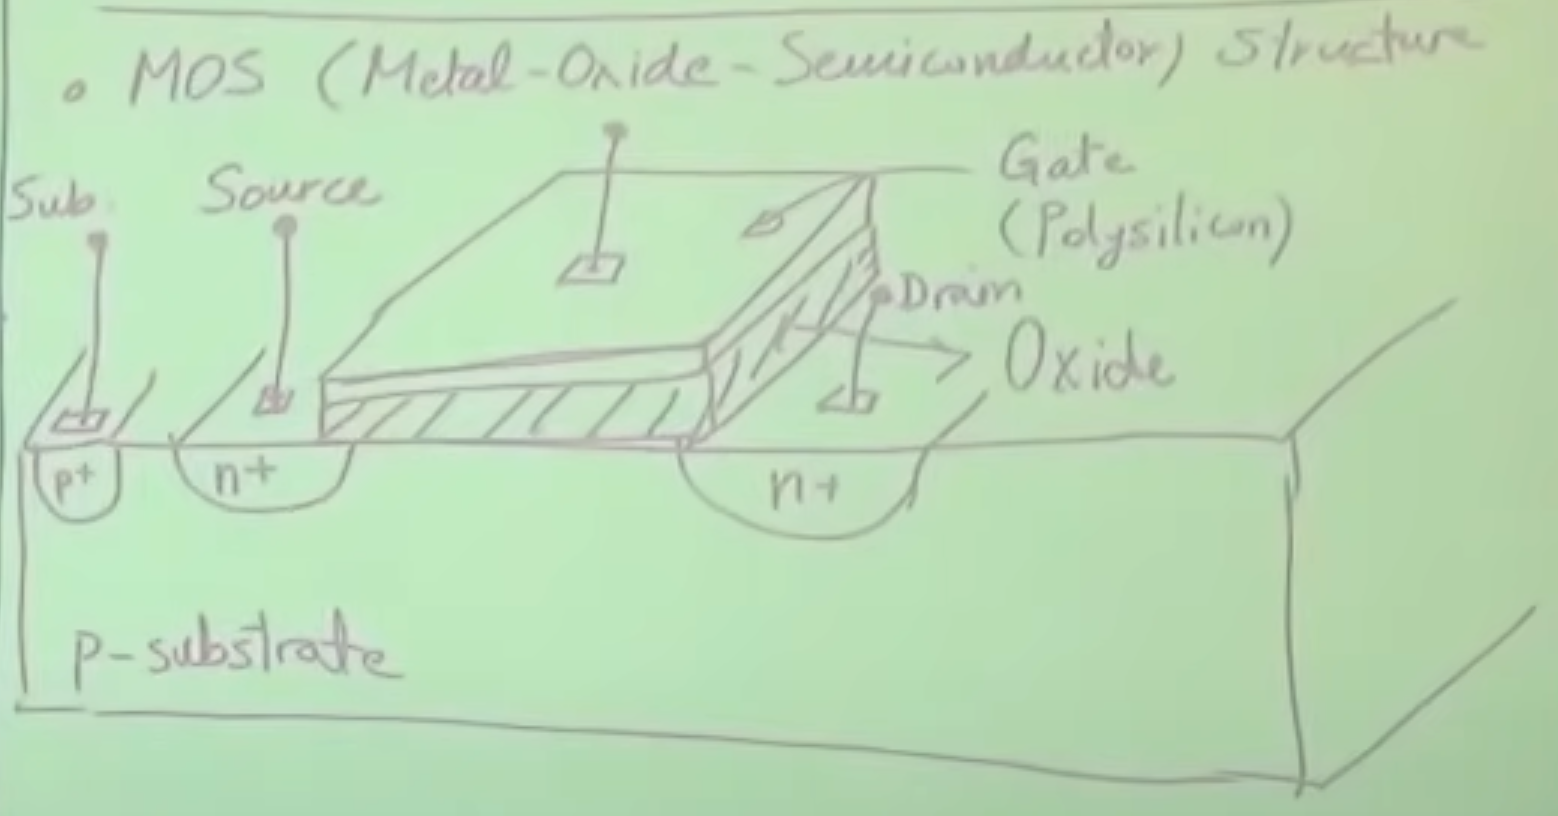 • MOS (Metal-Oxide-Semiconductor) Structure
Sub.
Source
Gate
(Polysilicon)
Drain
Oxide
p+
n+
n+
p-substrate